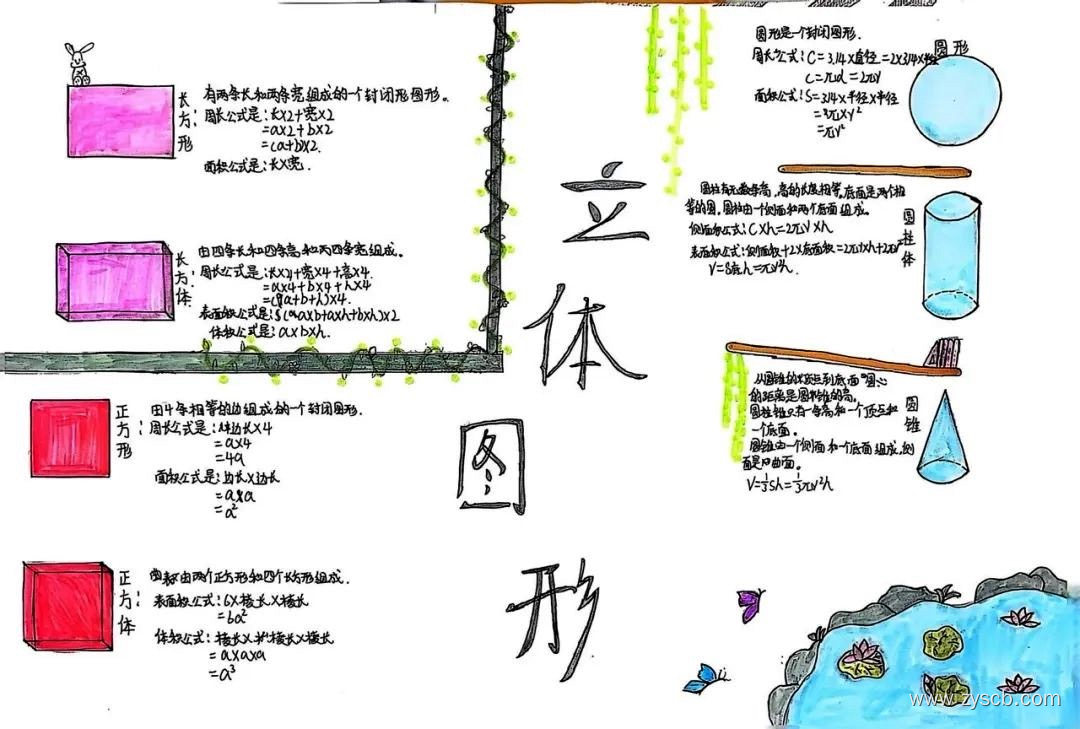 长方形
有两条长和两条宽组成的一个封闭形图形。
周长公式是:长×2+宽×2
=a×2+b×2
=(a+b)×2.
面积公式是:长×宽.
长方体
由四条长和四条高和两四条宽组成。
周长公式是:长×4+宽×4+高×4.
=a×4+b×4+h×4
=(a+b+h)×4.
表面积公式是:(a×b+a×h+b×h)×2
体积公式是:a×b×h.
正方形
由4条相等的边组成的一个封闭图形.
周长公式是:边长×4
=a×4
=4a
面积公式是:边长×边长
=a×a
=a²
正方体
由两个正方形和四个长方形组成.
表面积公式:6×棱长×棱长
=6a²
体积公式:棱长×棱长×棱长
=a×a×a
=a³
立体图形
圆形
圆形是一个封闭图形.
周长公式:C=3.14×直径=2×3.14×半径
C=πd=2πr
面积公式:S=3.14×半径×半径
=3πxr²
=πr²
圆柱体
圆柱有无数条高,高的长度相等,底面是两个相
等的圆,圆柱由一个侧面和两个底面组成。
侧面积公式:C×h=2πr×h
表面积公式:侧面积+2×底面积=2πr×h+2πr²
V=S底h=πr²h.
圆锥
从圆锥的顶点到底面圆心
的距离是圆锥的高。
圆锥只有一条高和一个顶点和
一个底面。
圆锥由一个侧面和一个底面组成,侧
面是曲面。
V=⅓sh=⅓πr²h
www.zyscb.com